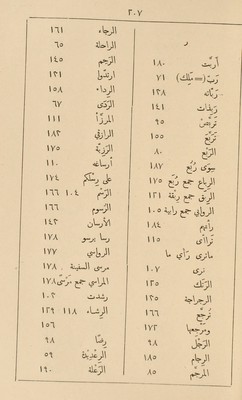 ٢٠٧
ر
أربَّت ١٨٠
رَبّ (= مَلِك) ٧١
رَبّانه ١٣٨
رَبِذات ١٤١
تَرَبَّصْ ٩٥
تَرَبَّع ١٥٥
الرَّبَع ٨٠
سِوَى رُبَع ١٨٧
الرِباع جمع رُبَع ١٧٥
الرِبَق جمع رِبْقة ١٣١
الروابي جمع رابية ١٠٥
رابهم ١٨٤
تراءى ١١٥
ماترى رَأي ما
نرى ١٠٧
الرَتَك ١٢٥
الرجراجة ١٢٥
تُرَجِّع ١٦٦
ومَرْجِعها ١٧٢
الرَجُل ٩٨
الرِجام ١٨٥
المرجَّم ٨٥
الرجاء ١٦١
الراحلة ٦٥
الرَحم ١٤٥
ارتدوا ١٣١
الرِداء ١٥٨
الرَّدَى ٦٧
المرزّأ ١١١
الرازقي ١٨٢
الرَزيّة ١٧٥
أرساغه ١١٠
على رِسلكم ١٧٤
الرَّسْم ١٠٤ ١٦٦
الرُّسوم ١٦٦
الأرسان ١٤٢
رسا يرسو ١٧٨
الرواسي ١٧٧
مرسى السفينة ١٧٨
المراسي جمع مَرْسَى ١٧٨
رشدت ١٠٢
الرِشاء ١١٨ ١٢٩
١٥٦
رِضًا ٩٨
الرِعْدِيدَة ٥٩
الرَعْلة ١٩٠